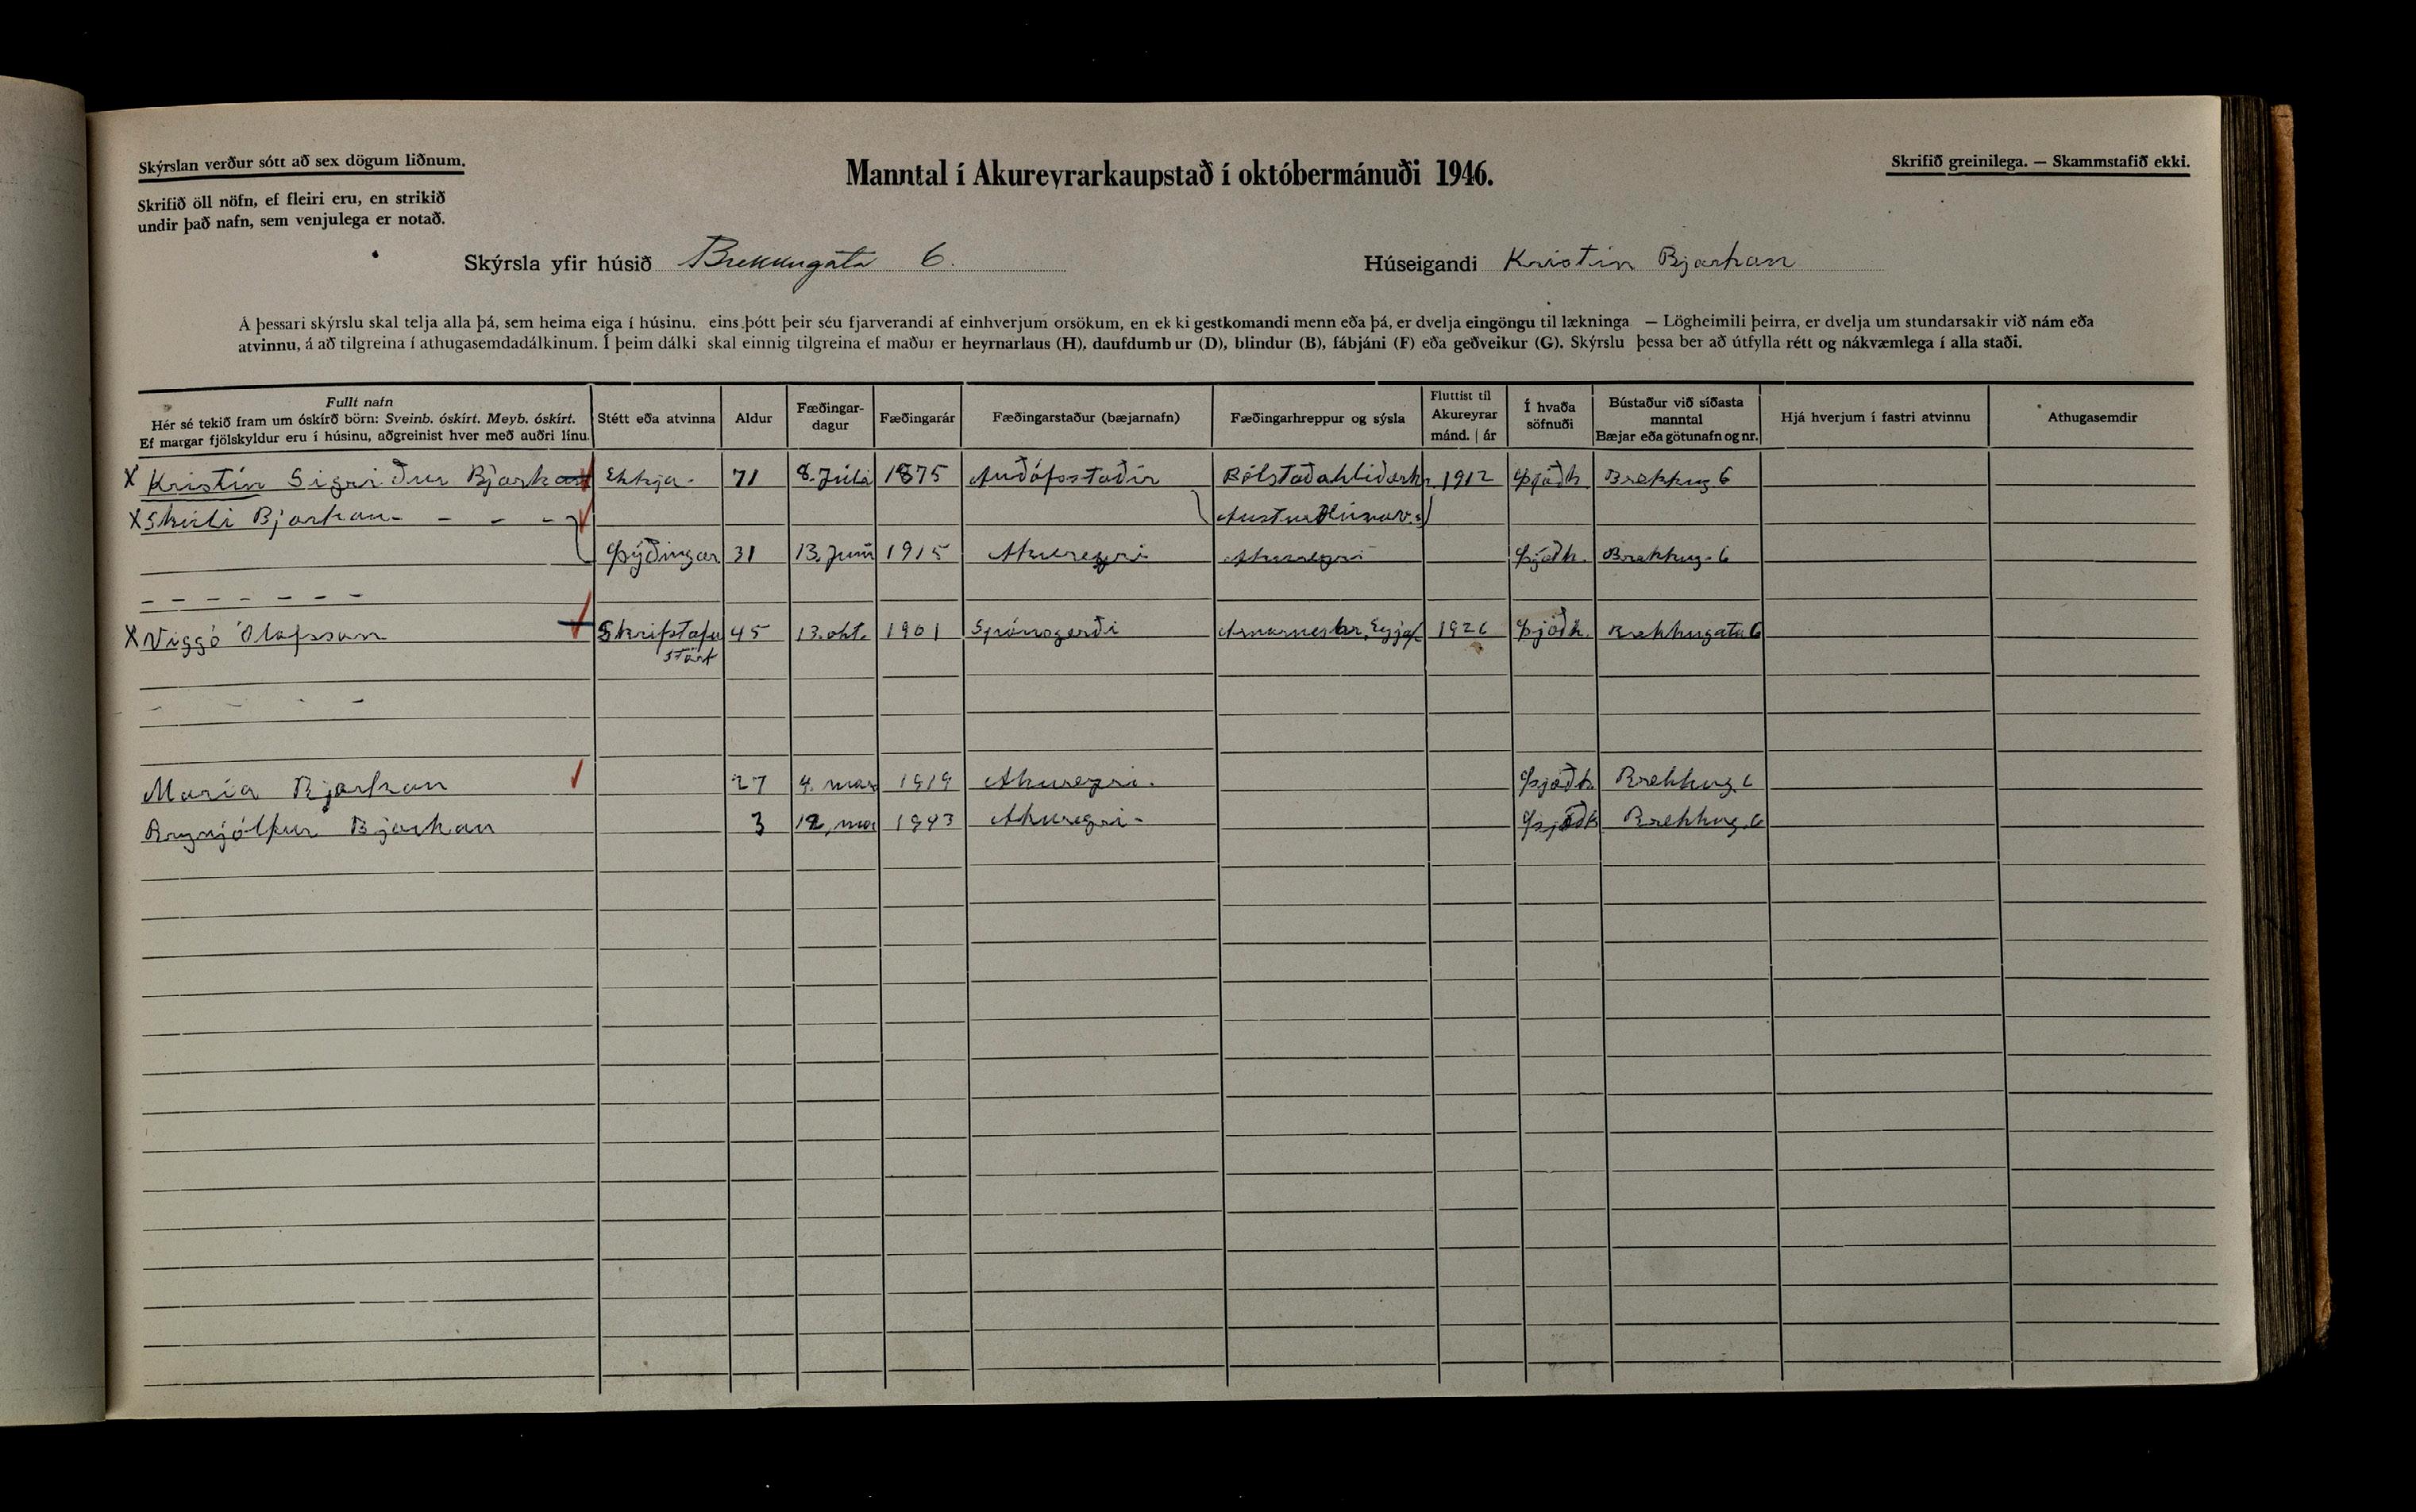 Skýrslan verður sótt að sex dögum liðnum.
Skrifið öll nöfn, ef fleiri eru, en strikið
undir það nafn, sem venjulega er notað.
Manntal í Akureyrarkaupstað í októbermánuði 1946.
Skrifið greinilega. — Skammstafið ekki.
Skýrsla yfir húsið Brekkugata 6.
Húseigandi Kristín Bjarkan
Á þessari skýrslu skal telja alla þá, sem heima eiga í húsinu, eins þótt þeir séu fjarverandi af einhverjum orsökum, en ekki gestkomandi menn eða þá, er dvelja eingöngu til lækninga — Lögheimili þeirra, er dvelja um stundarsakir við nám eða
atvinnu, á að tilgreina í athugasemdadálkinum. Í þeim dálki skal einnig tilgreina ef maður er heyrnarlaus (H), daufdumbur (D), blindur (B), fábjáni (F) eða geðveikur (G). Skýrslu þessa ber að útfylla rétt og nákvæmlega í alla staði.
Fullt nafn
Hér sé tekið fram um óskírð börn: Sveinb. óskírt. Meyb. óskírt.
Ef margar fjölskyldur eru í húsinu, aðgreinist hver með auðri línu.
Stétt eða atvinna
Aldur
Fæðingar-
dagur
Fæðingarár
Fæðingarstaður (bæjarnafn)
Fæðingarhreppur og sýsla
Fluttist til
Akureyrar
mánd. | ár
Í hvaða
söfnuði
Bústaður við síðasta
manntal
Bæjar eða götunafn og nr.
Hjá hverjum í fastri atvinnu
Athugasemdir
X Kristín Sigríður Bjarkan Ekkja. 71 8. Júlí 1875 Auðólfsstaðir Bólstaðahlíðarh. 1912 Þjóðk Brekkug 6
X Skúli Bjarkan - - - - Austur Húnav.s
Þýðingar 31 13. Júní 1915 Akureyri Akureyri Þjóðk. Brekkug. 6
- - - - - - -
X Viggó Ólafsson Skrifstofu 45 13. okt. 1901 Spónsgerði Arnarneshr, Eyjaf 1926 Þjóðk. Brekkugata 6
störf
María Bjarkan 27 4. mar 1919 Akureyri. Þjóðk. Brekkug 6
Brynjólfur Bjarkan 3 12, ma 1943 Akureyri - Þjóðk Brekkug. 6